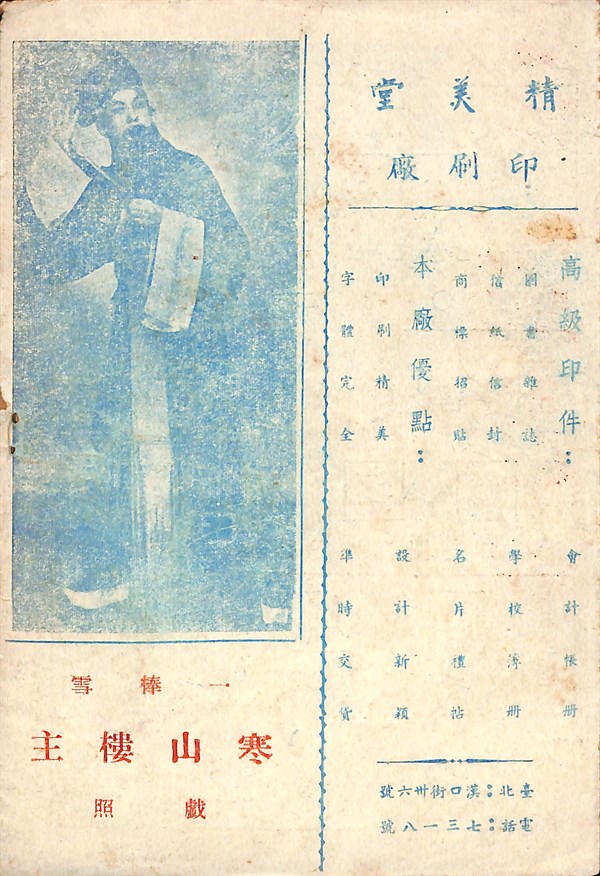 精美堂
印刷廠
高級印件：
圖書雜誌
信紙信封
商標招貼
會計帳冊
學校簿冊
名片禮帖
本廠優點：
印刷精美
字體完全
設計新穎
準時交貨
臺北：漢口街卅六號
電話：七三一八號
一棒雪
寒山樓主
戲照